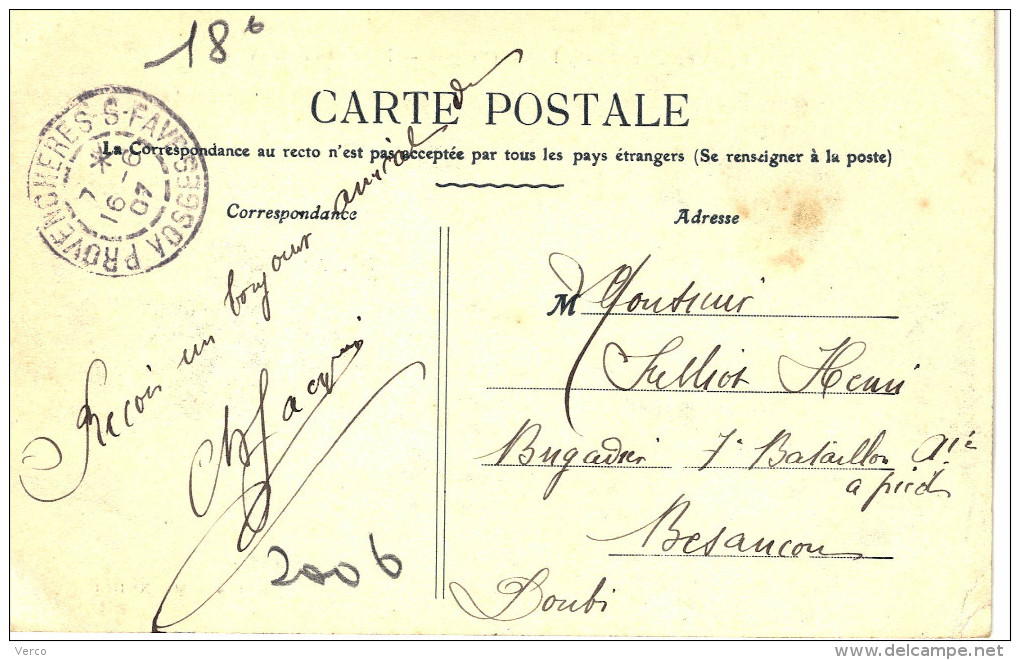 18 6
CARTE POSTALE
La Correspondance au recto n'est pas acceptée par tous les pays étrangers (Se renseigner à la poste)
PROVENCHERES-S-FAVE VOSGES
7 *
16 - 6
07
Correspondance
Reçois un bonjour amical de
Jacquin
2006
Adresse
M Monsieur
Henri
Brigadier 7e Bataillon Art ie
a pied
Besançon
Doubs
Verco
delcampe.net